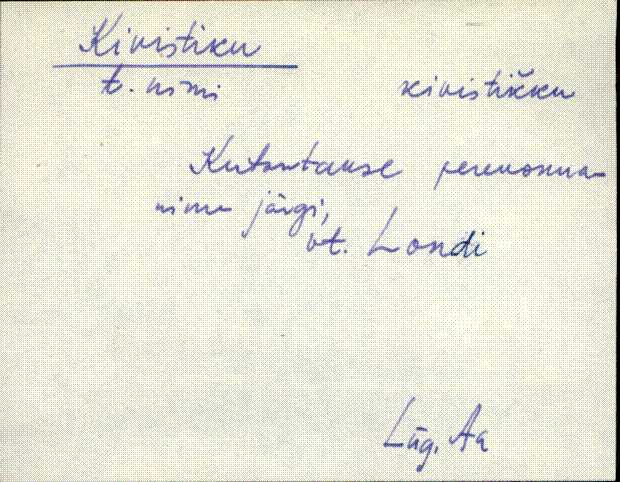 Kivistiku
t. nimi kivistikku
Kutsutakse perekonna-
nime järgi,
vt. Londi
Lüg. Aa